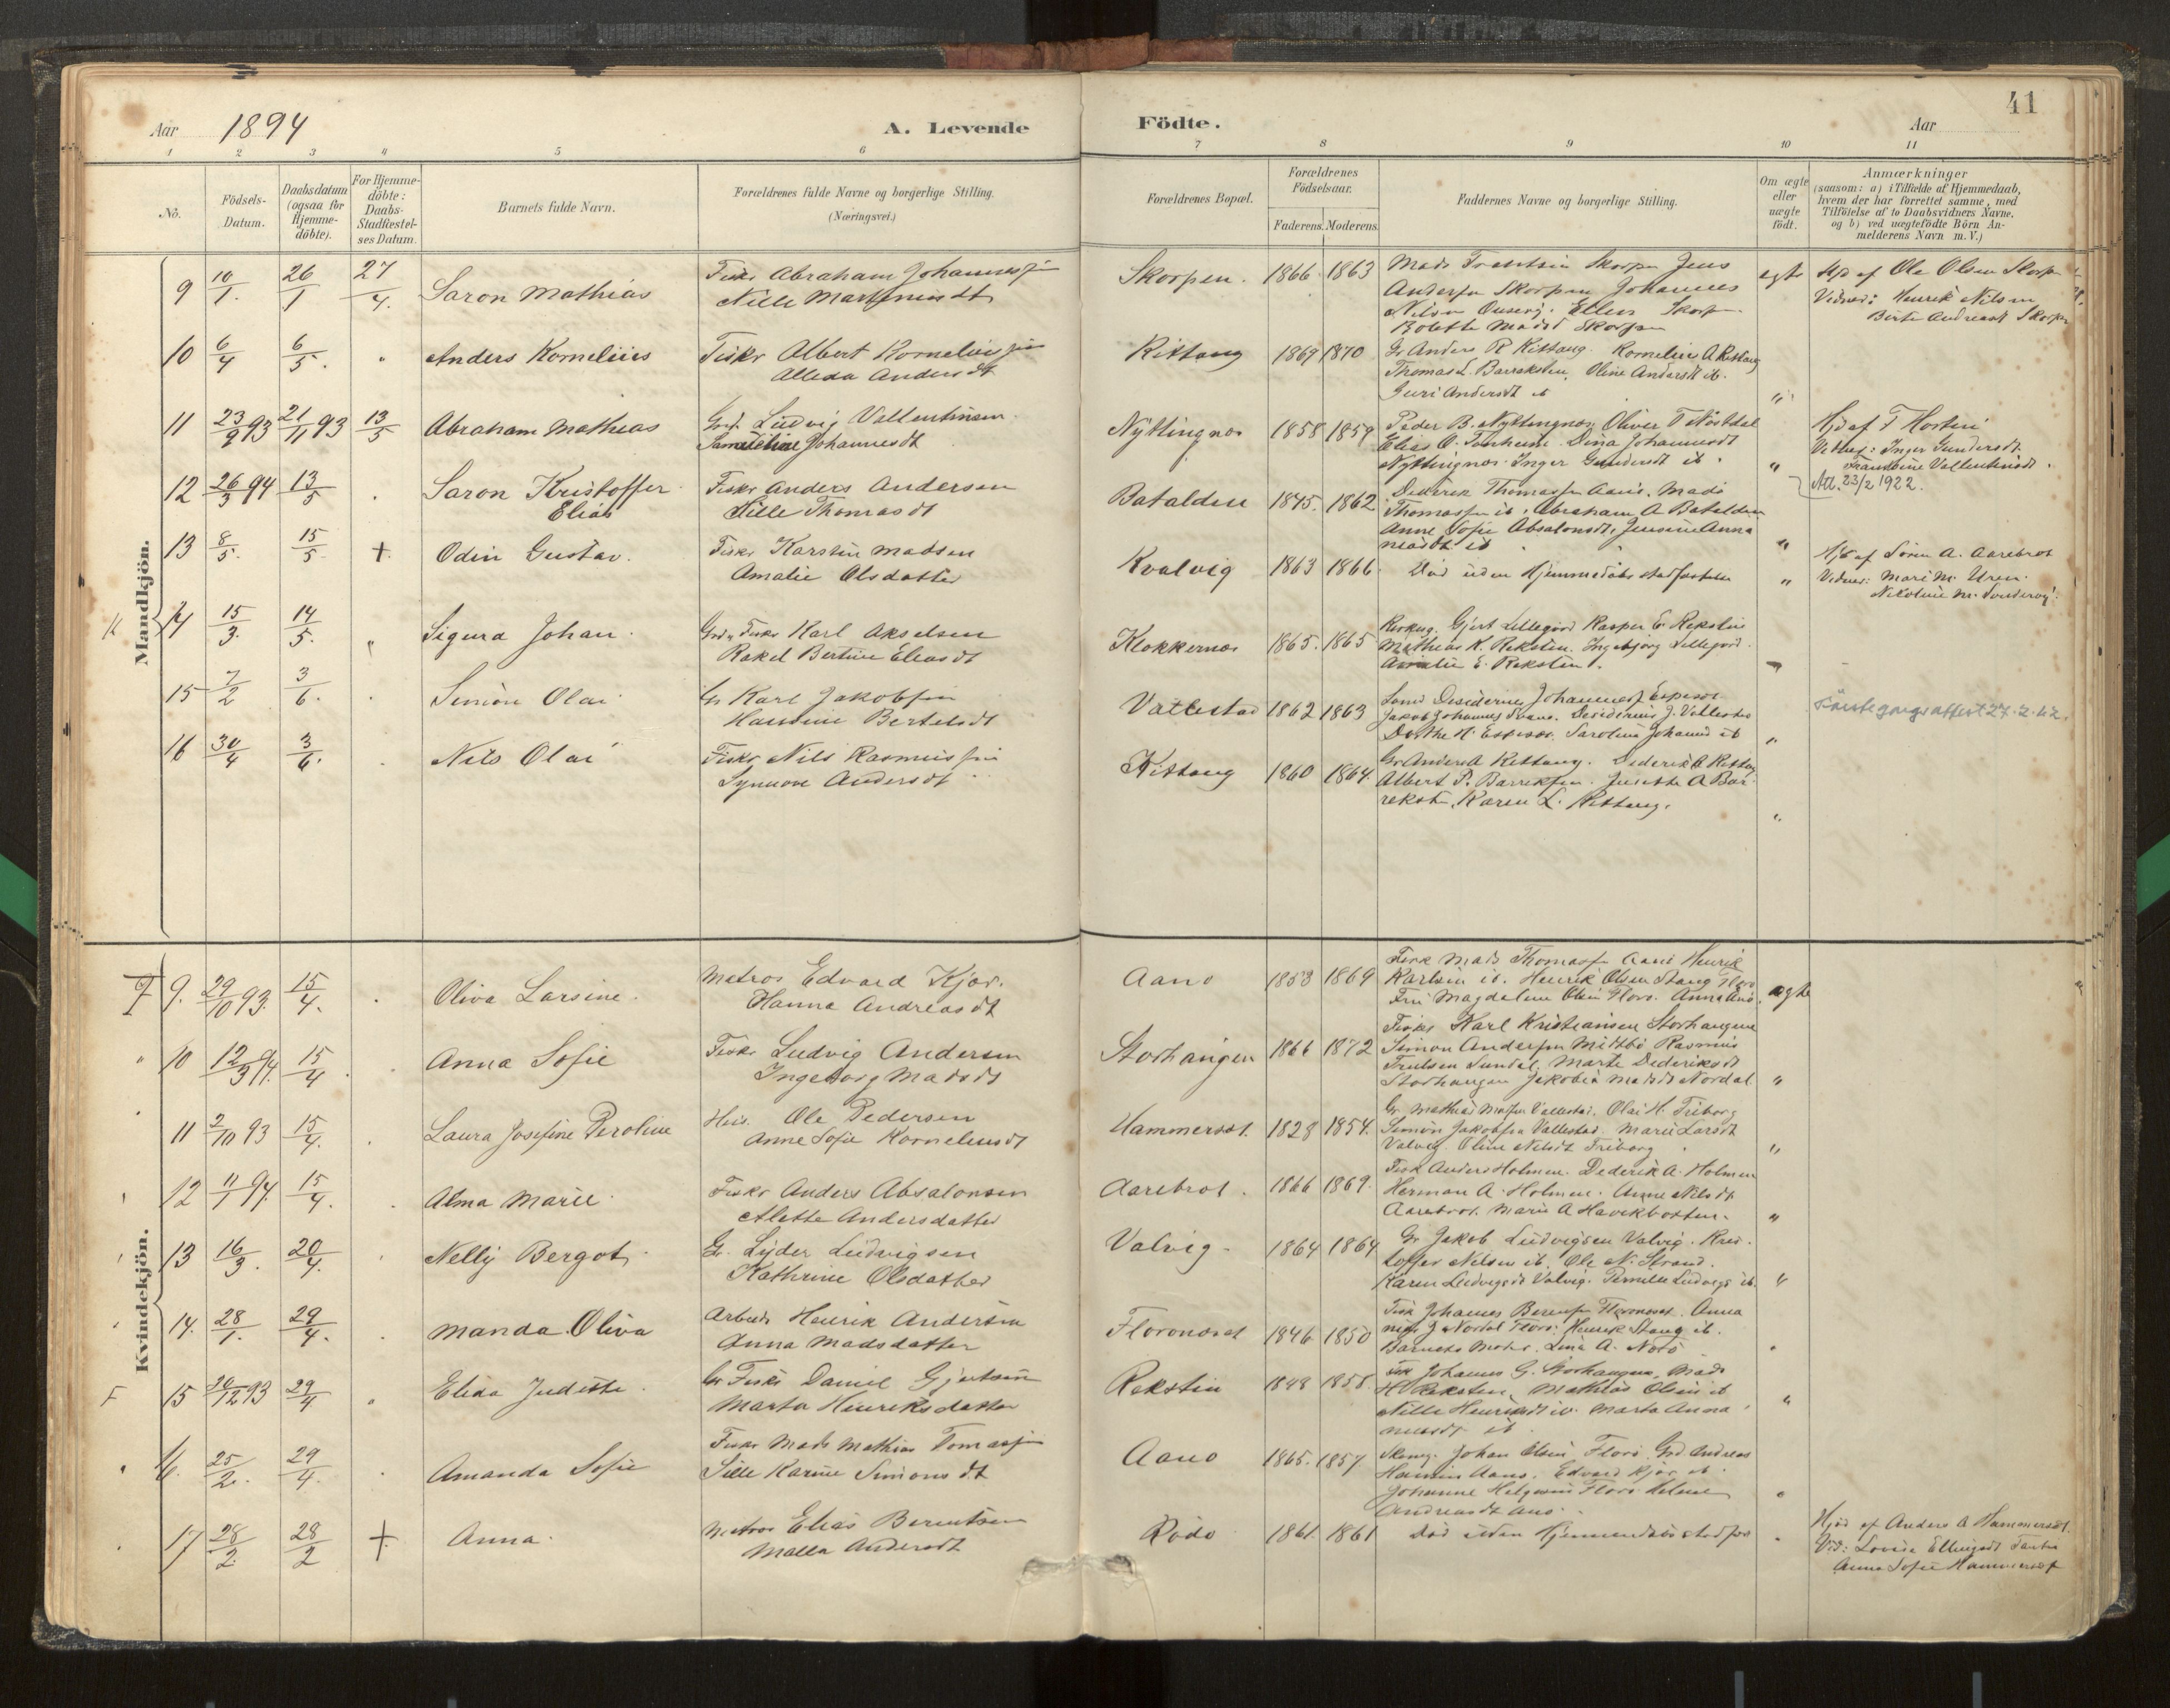 41
Aar 1894
A. Levende
Födte.
Aar
1 2 3 4 5 6 7 8 9 10 11
No.
Födsels-
Datum.
Daabsdatum
(ogsaa for
Hjemme-
döbte).
For Hjemme-
döbte:
Daabs-
Stadfæstel-
ses Datum.
Barnets fulde Navn.
Forældrenes fulde Navne og borgerlige Stilling.
(Næringsvei.)
Forældrenes Bopæl.
Forældrenes
Födselsaar.
Faderens. Moderens.
Faddernes Navne og borgerlige Stilling.
Om ægte
eller
uægte
födt.
Anmærkninger
(saasom: a) i Tilfælde af Hjemmedaab,
hvem der har forrettet samme, med
Tilföielse af to Daabsvidners Navne,
og b) ved uægtefödte Börn An-
melderens Navn m.V.)
Mandkjön.
9 10/1. 26/1 27/4. Saron Mathias
Fisker Abraham Johannessen
Nille
Skorpen. 1866 1863
Mads Skorpen Jens
Andersen Skorpen Johannes
Nilsen Ellen Skorpen
Bolette Madsdt Skorpen
ægte
Hjd af Ole Olsen Skorpen
Vidner: Henrik Nilsen
Skorpen
10 6/4 6/5. " Anders Kornelius
Fisker Albert Korneliussen
Alleda Andersdt
Kittang 1869 1870
Gr Anders R Kittang. Kornelius A Kittang
Thomas L. Barreksten, Oline Andersdt ib.
Guri Andersdt ib
"
11 23/9 93 21/11 93 13/5 Abraham Mathias
Ludvig Vallentinsen.
Johannesdt
Nyttingnes 1858 1859
Peder B. Nyttingnes, Oliver T Nosdal
Elias O. Dina Johannesdt
Nyttingnes. Inger Gundersdt ib.
"
Hjd af F Hosteni
Vidner: Inger Gundersdt.
Vallentinsdt.
Att. 23/2 1922.
12 26/3 94 13/5 . Saron Kristoffer
Elias
Fisker Anders Andersen
Sille Thomasdt
Batalden 1845. 1862
Diderik Thomassen Aanø. Mads
Thomassen ib. Abraham A Batalden
Anne Sofie Absalonsdt, Anna
Madsdt ib
"
13 8/5. 15/5 + Odin Gustav.
Fisker Karsten Madsen
Amalie Olsdatter
Kvalvig 1863 1866.
Død uden Hjemmedaabs stadfæstelse
"
Hjd af Søren A. Aarebrot
Vidner: Mari M. Uren.
Nikoline M.
K 14 15/3. 14/5. " Sigurd Johan.
Fisker Karl Akselsen
Rakel Bertine Eliasdt
Klokkernes 1865. 1865
Gjert Lillegård Kasper E. Reksten
Mathias K. Reksten. Ingebjørg Lillegård.
Amalie E. Reksten.
15 7/2 3/6. . Simon Olai
Gr Karl Jakobsen
Hansine Bertelsdt
Vallestad 1862 1863
Desiderius Johannes
Jakob Johannes Svanø. Desiderius J. Vallestad
Dorthe H. Sarolina Johannesdt ib
"
Förstegangsattest 27.2.42.
16 30/4 3/6. . Nils Olai
Fisker Nils Rasmussen
Synnøve Andersdt
Kittang 1860 1864.
Gr Anders A Kittang. Diderik A Kittang
Albert P. Barreksten. A Bar-
reksten. Karen L. Kittang.
"
Kvindekjön.
F 9. 29/10 93. 15/4. . Oliva Larsine.
Matros Edvard Kjær.
Hanna Andreasdt
Aanø 1853 1869
Fisk Mads Thomassen Aanø Henrik
Karlsen ib. Henrik Olsen Stang Florø
Fru Magdalene Olsen Florø. Anna Anø
ægte
" 10 12/3 94. 15/4 . Anna Sofie
Fisker Ludvig Andersen
Ingeborg Madsdt
Storhaugen 1866 1872
Fisker Karl Kristiansen Storhaugen
Simon Andersen Midtbø Rasmus
Sundal, Marte Dideriksdt
Storhaugen Jakobia Madsdt Nordal
"
' 11 2/10 93 15/4. . Laura Josefine Peroline
Hus. Ole Pedersen
Anne Sofie Korneliusdt
Hammersæt. 1828 1854.
Gr Mathias Vallestad. Olai H. Triborg
Simon Jakobsen Vallestad. Marie Larsdt
Valvig. Oline Nilsdt Triborg
"
' 12 11/1 94. 15/4. . Alma Marie.
Fisker Anders Absalonsen
Alette Andersdatter
Aarebrot. 1866 1869.
Fisk Anders Holmen. Dederik A. Holmen
Herman A. Holmen. Anne Nilsdt
Aarebrot. Marie A
"
' 13 16/3. 20/4. ' Nelly Bergot.
Gr. Lyder Ludvigsen
Kathrine Olsdatter
Valvig. 1864 1864
Gr Jakob Ludvigsen Valvig. Kris-
toffer Nilsen ib. Ole N. Strand.
Karen Ludvigsdt Valvig. Pernille Ludvigs ib.
"
' 14. 28/1. 29/4. . Manda Oliva
Arbeid. Henrik Andersen
Anna Madsdatter
Floronæset 1846 1850
Fisk Johannes Floronæset. Anna
J Nordal Florø. Henrik Stang ib.
Barnets Moder. Lina A.
.
F 15 30/12 93 29/4 " Elida Judithe.
Gr Fisker Daniel Gjertsen
Marta Henriksdatter
Rekstin 1848 1858.
Fisk Johannes G. Storhaugen, Mads
H Reksten, Mathias Olsen ib
Nille Henriksdt ib. Marta Anna
ib.
"
" 16. 25/2. 29/4. . Amanda Sofie
Fisker Mads Mathias Tomassen
Sille Karine Simonsdt
Aanø 1865. 1857.
Johan Olsen Florø. Andreas
Hansen Aanø. Edvard Kjær ib.
Johanne Florø.
Andreasdt Anø.
"
17 28/2. 28/2 + Anna.
Matros Elias Berentsen
Malla Andersdt
Rødø 1861. 1861
Død uden Hjemmedaabs stadfæs
.
Hjd af Anders A Hammersæt.
Vid: Lovise
Anna Sofie Hammersæt